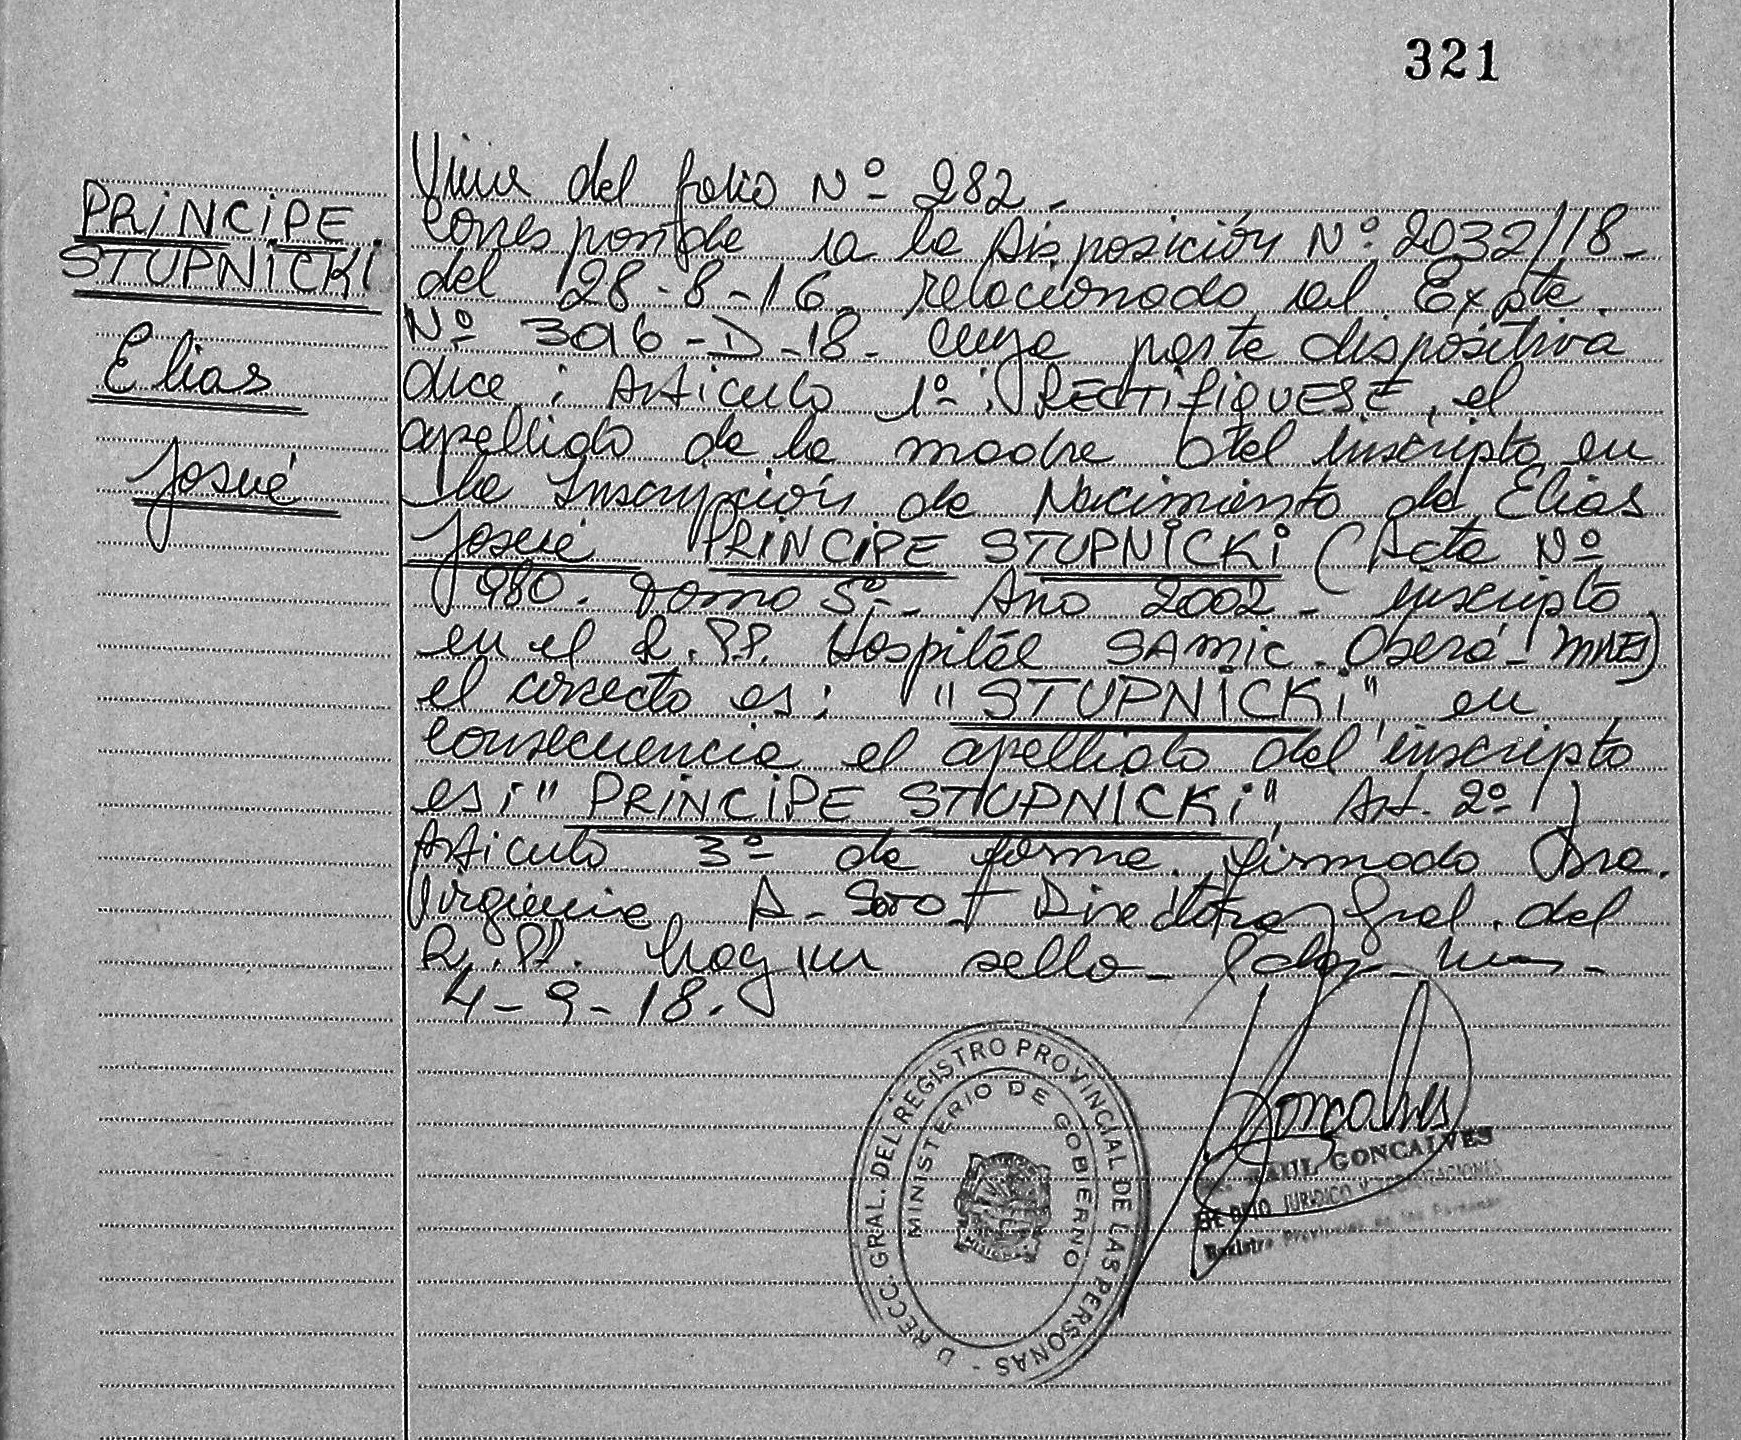 321
PRiNCiPE
STUPNiCKi
Elias
Josué
Viene del folio Nº 282.
Corresponde a la Disposición Nº 2032/18-
del 28-8-16. relacionado al Expte.
Nº 3016-D-18- cuya parte dispositiva
dice: Articulo 1º: RECTIFIQUESE, el
apellido de la madre del inscripto en
la Inscripción de Nacimiento de Elias
Josué PRiNCiPE STUPNiCKi (Acta Nº
980. Tomo 5º- Año 2002- inscripto
en el R.PP. Hospital SAMIC. Oberá-Mnes)
el correcto es: "STUPNiCKi" en
consecuencia el apellido del inscripto
es: "PRiNCiPE STUPNiCKi", Art. 2º
Articulo 3º de forma. firmado Dra.
Virginia A. Directora Gral. del
R.PP. hay un sello-
4-9-18.
DRECC. GRAL. DEL REGISTRO PROVINCIAL DE LAS PERSONAS -
MINISTERIO DE GOBIERNO
MISIONES
Goncalves
GONCALVES
JURIDICO Y
Registro Provincial de las Personas